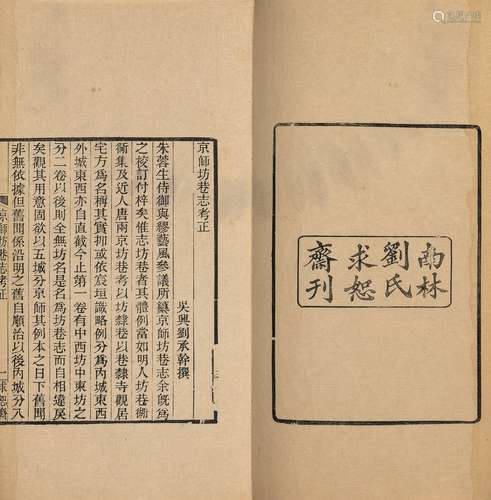 南林
劉氏
求恕
齋刊
京師坊巷志考正
吳興劉承幹撰
朱蓉生侍御與繆藝風參議所纂京師坊巷志余旣為
之校訂付梓矣惟志坊巷者其體例當如明人坊巷衚
衕集及近人唐兩京坊巷考以坊隸巷以巷隸寺觀居
宅方為名稱其實抑或依宸垣識略例分為內城東西
外城東西亦自直截今止第一卷有中西坊中東坊之
分二卷以後則全無坊名是名為坊巷志而自相違戾
矣觀其用意固欲以五城分京師其例本之日下舊聞
非無依據但舊聞係沿明之舊自順治以後內城分入
京師坊巷志考正
一 求恕齋